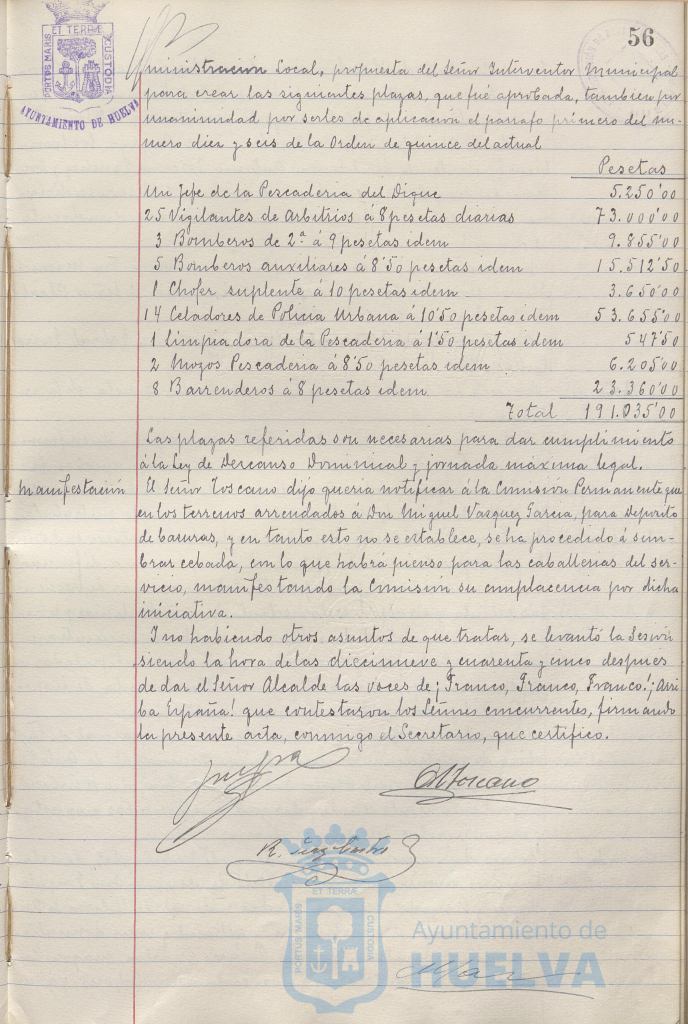 56
PORTUS MARIS
ET TERRÆ
CUSTODIA
AYUNTAMIENTO DE HUELVA
ministración Local, propuesta del Señor Interventor Municipal
para crear las siguientes plazas, que fué aprobada, tambien por
unanimidad por serles de aplicación el párrafo primero del nú-
mero diez y seis de la Orden de quince del actual
Pesetas
Un Jefe de la Pescaderia del Dique 5.250'00
25 Vigilantes de Arbitrios á 8 pesetas diarias 73.000'00
3 Bomberos de 2ª á 9 pesetas idem 9.855'00
5 Bomberos auxiliares á 8'50 pesetas idem 15.512'50
1 Chofer suplente á 10 pesetas idem 3.650'00
14 Celadores de Policia Urbana á 10'50 pesetas idem 53.655'00
1 Limpiadora de la Pescaderia á 1'50 pesetas idem 547'50
2 Mozos Pescaderia á 8'50 pesetas idem 6.205'00
8 Barrenderos á 8 pesetas idem 23.360'00
Total 191.035'00
Las plazas referidas son necesarias para dar cumplimiento
á la Ley de Descanso Dominical y jornada máxima legal.
Manifestación
El Señor Toscano dijo queria notificar á la Comisión Permanente que
en los terrenos arrendados á Don Miguel Vazquez Garcia, para Deposito
de basuras, y en tanto esto no se establece, se ha procedido á sem-
brar cebada, con lo que habrá pienso para las caballerias del ser-
vicio, manifestando la Comisión su complacencia por dicha
iniciativa.
Y no habiendo otros asuntos de que tratar, se levantó la Sesión
siendo la hora de las diecinueve y cuarenta y cinco despues
de dar el Señor Alcalde las voces de ¡Franco, Franco, Franco! ¡Arri-
ba España! que contestaron los Señores concurrentes, firmando
la presente acta, conmigo el Secretario, que certifico.
Toscano
R.
PORTUS MARIS
ET TERRÆ
CUSTODIA
Ayuntamiento de
HUELVA